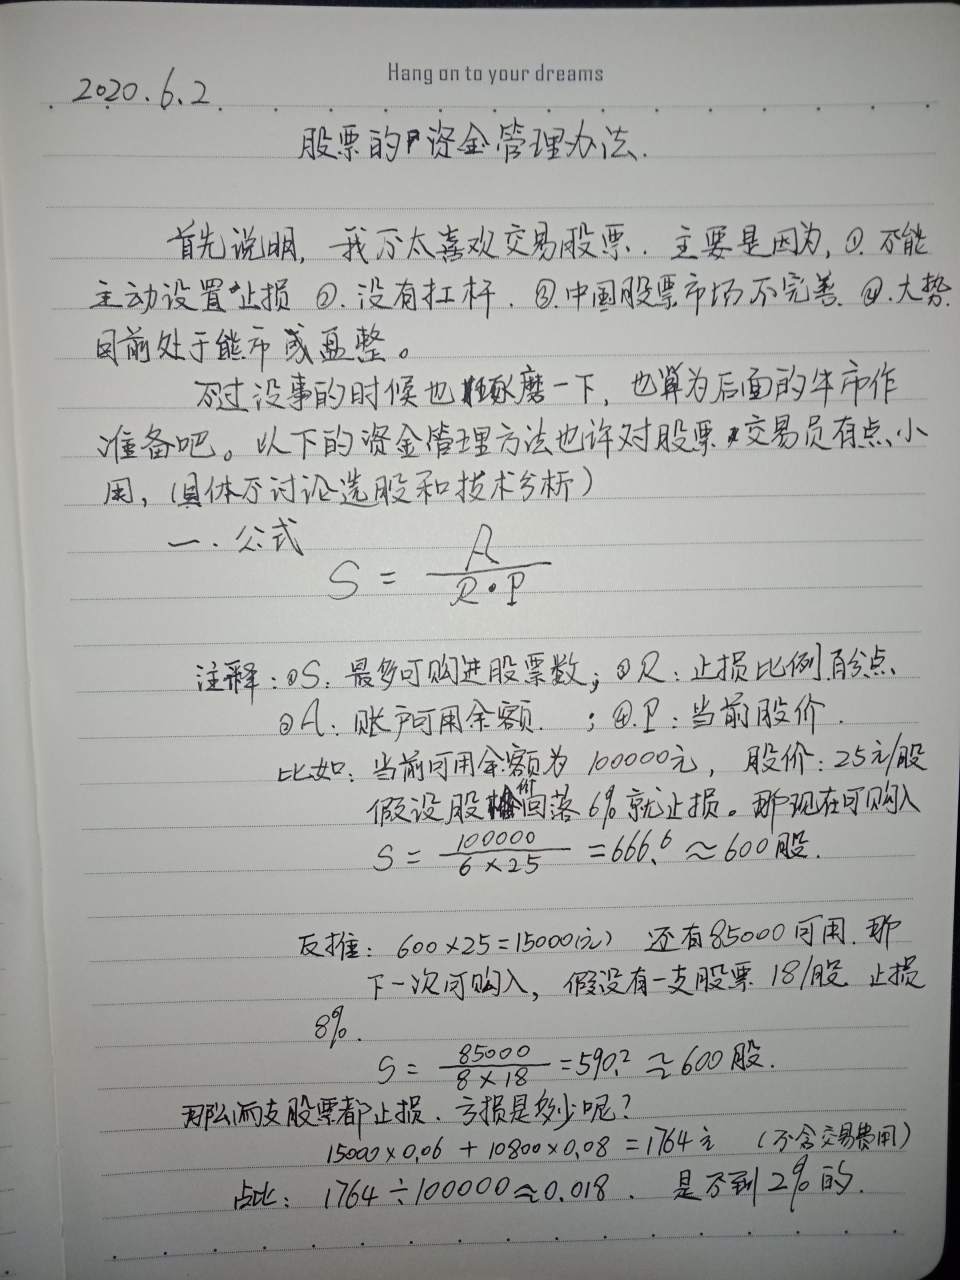 Hang on to your dreams
2020.6.2
股票的资金管理办法.
首先说明, 我不太喜欢交易股票. 主要是因为, ①. 不能
主动设置止损 ②. 没有杠杆. ③. 中国股票市场不完善. ④. 大势
目前处于熊市或盘整。
不过没事的时候也琢磨一下, 也算为后面的牛市作
准备吧。以下的资金管理方法也许对股票交易员有点小
用, (具体不讨论选股和技术分析)
一. 公式
S = A / R·P
注释: ①S: 最多可购进股票数; ②R: 止损比例百分点
③A: 账户可用余额. ; ④.P: 当前股价.
比如: 当前可用余额为 100000元, 股价: 25元/股
假设股价回落6%就止损。那现在可购入
S = 100000 / 6×25 = 666.6 ≈ 600股.
反推: 600×25=15000(元) 还有85000可用. 那
下一次可购入, 假设有一支股票 18/股 止损
8%.
S = 85000 / 8×18 = 590.2 ≈ 600股.
那么两支股票都止损. 亏损是多少呢?
15000×0.06 + 10800×0.08 = 1764元 (不含交易费用)
占比: 1764÷100000≈0.018. 是不到2%的.